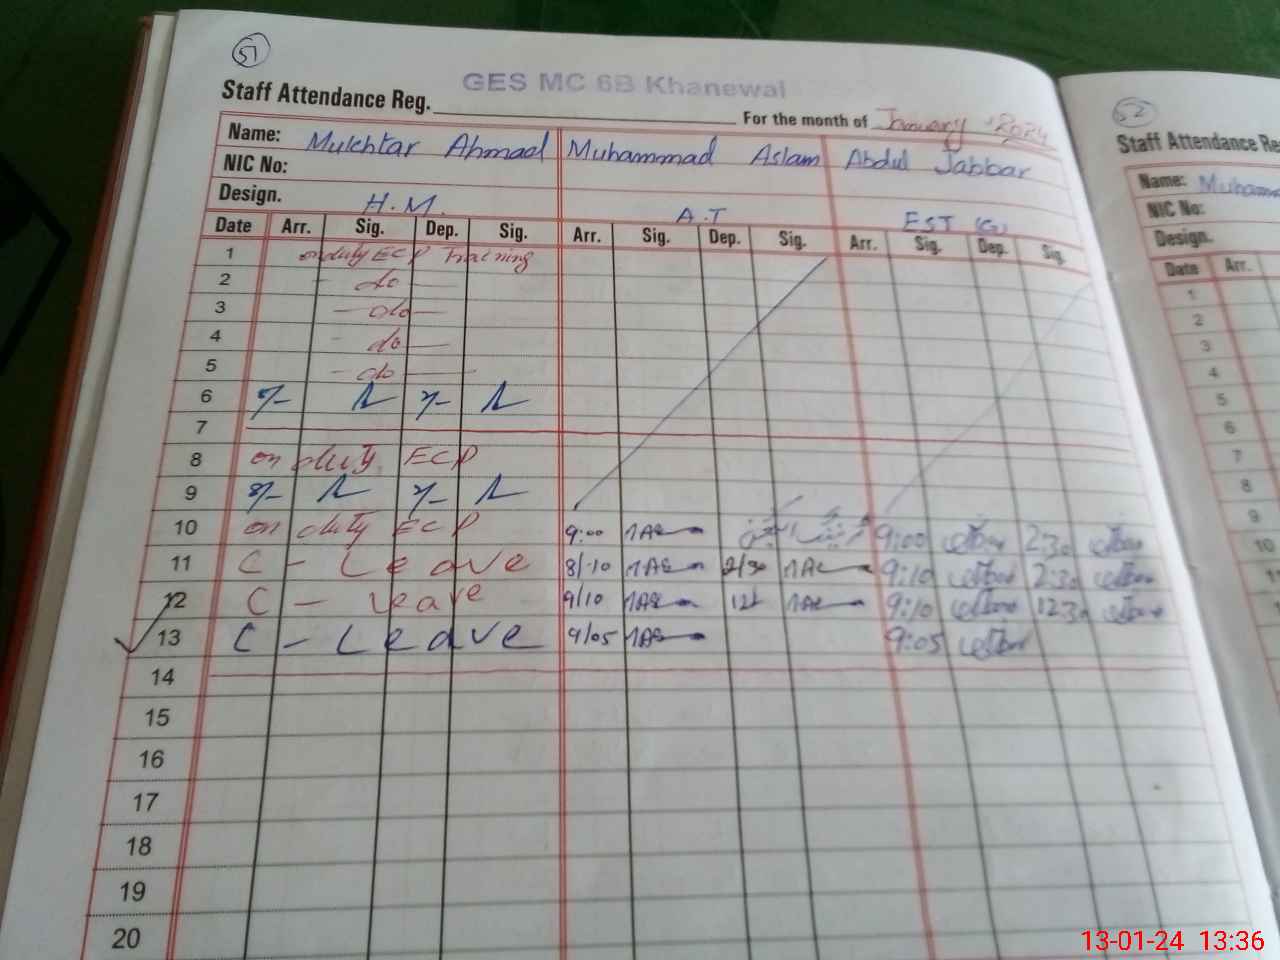 51
GES MC 6B Khanewal
Staff Attendance Reg. For the month of January 2024
Name: Mukhtar Ahmad Muhammad Aslam Abdul Jabbar
NIC No:
Design. H.M. A.T EST (G)
Date Arr. Sig. Dep. Sig. Arr. Sig. Dep. Sig. Arr. Sig. Dep. Sig.
1 on duty ECP Training
2 - do -
3 - do -
4 - do -
5 - do -
6
7
8 on duty ECP
9
10 on duty ECP 9:00 9:00 2:30
11 C - Leave 8/10 2/30 9:10 2:30
12 C - Leave 9/10 12/ 9:10 12:30
13 C - Leave 9/05 9:05
14
15
16
17
18
19
20
52
Staff Attendance Re
Name: Muhamm
NIC No:
Design.
Date Arr.
1
2
3
4
5
6
7
8
9
10
13-01-24 13:36